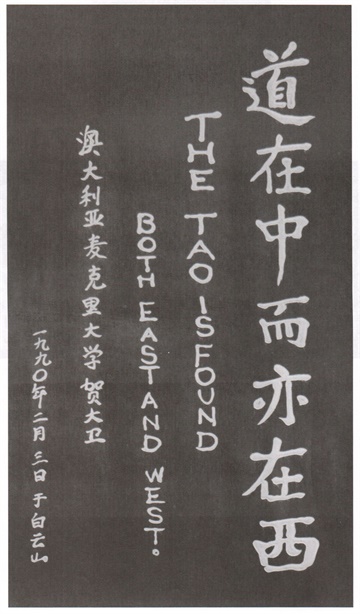 道在中而亦在西
THE TAO IS FOUND
BOTH EAST AND WEST。
澳大利亚麦克里大学贺大卫
一九九〇年二月三日于白云山。